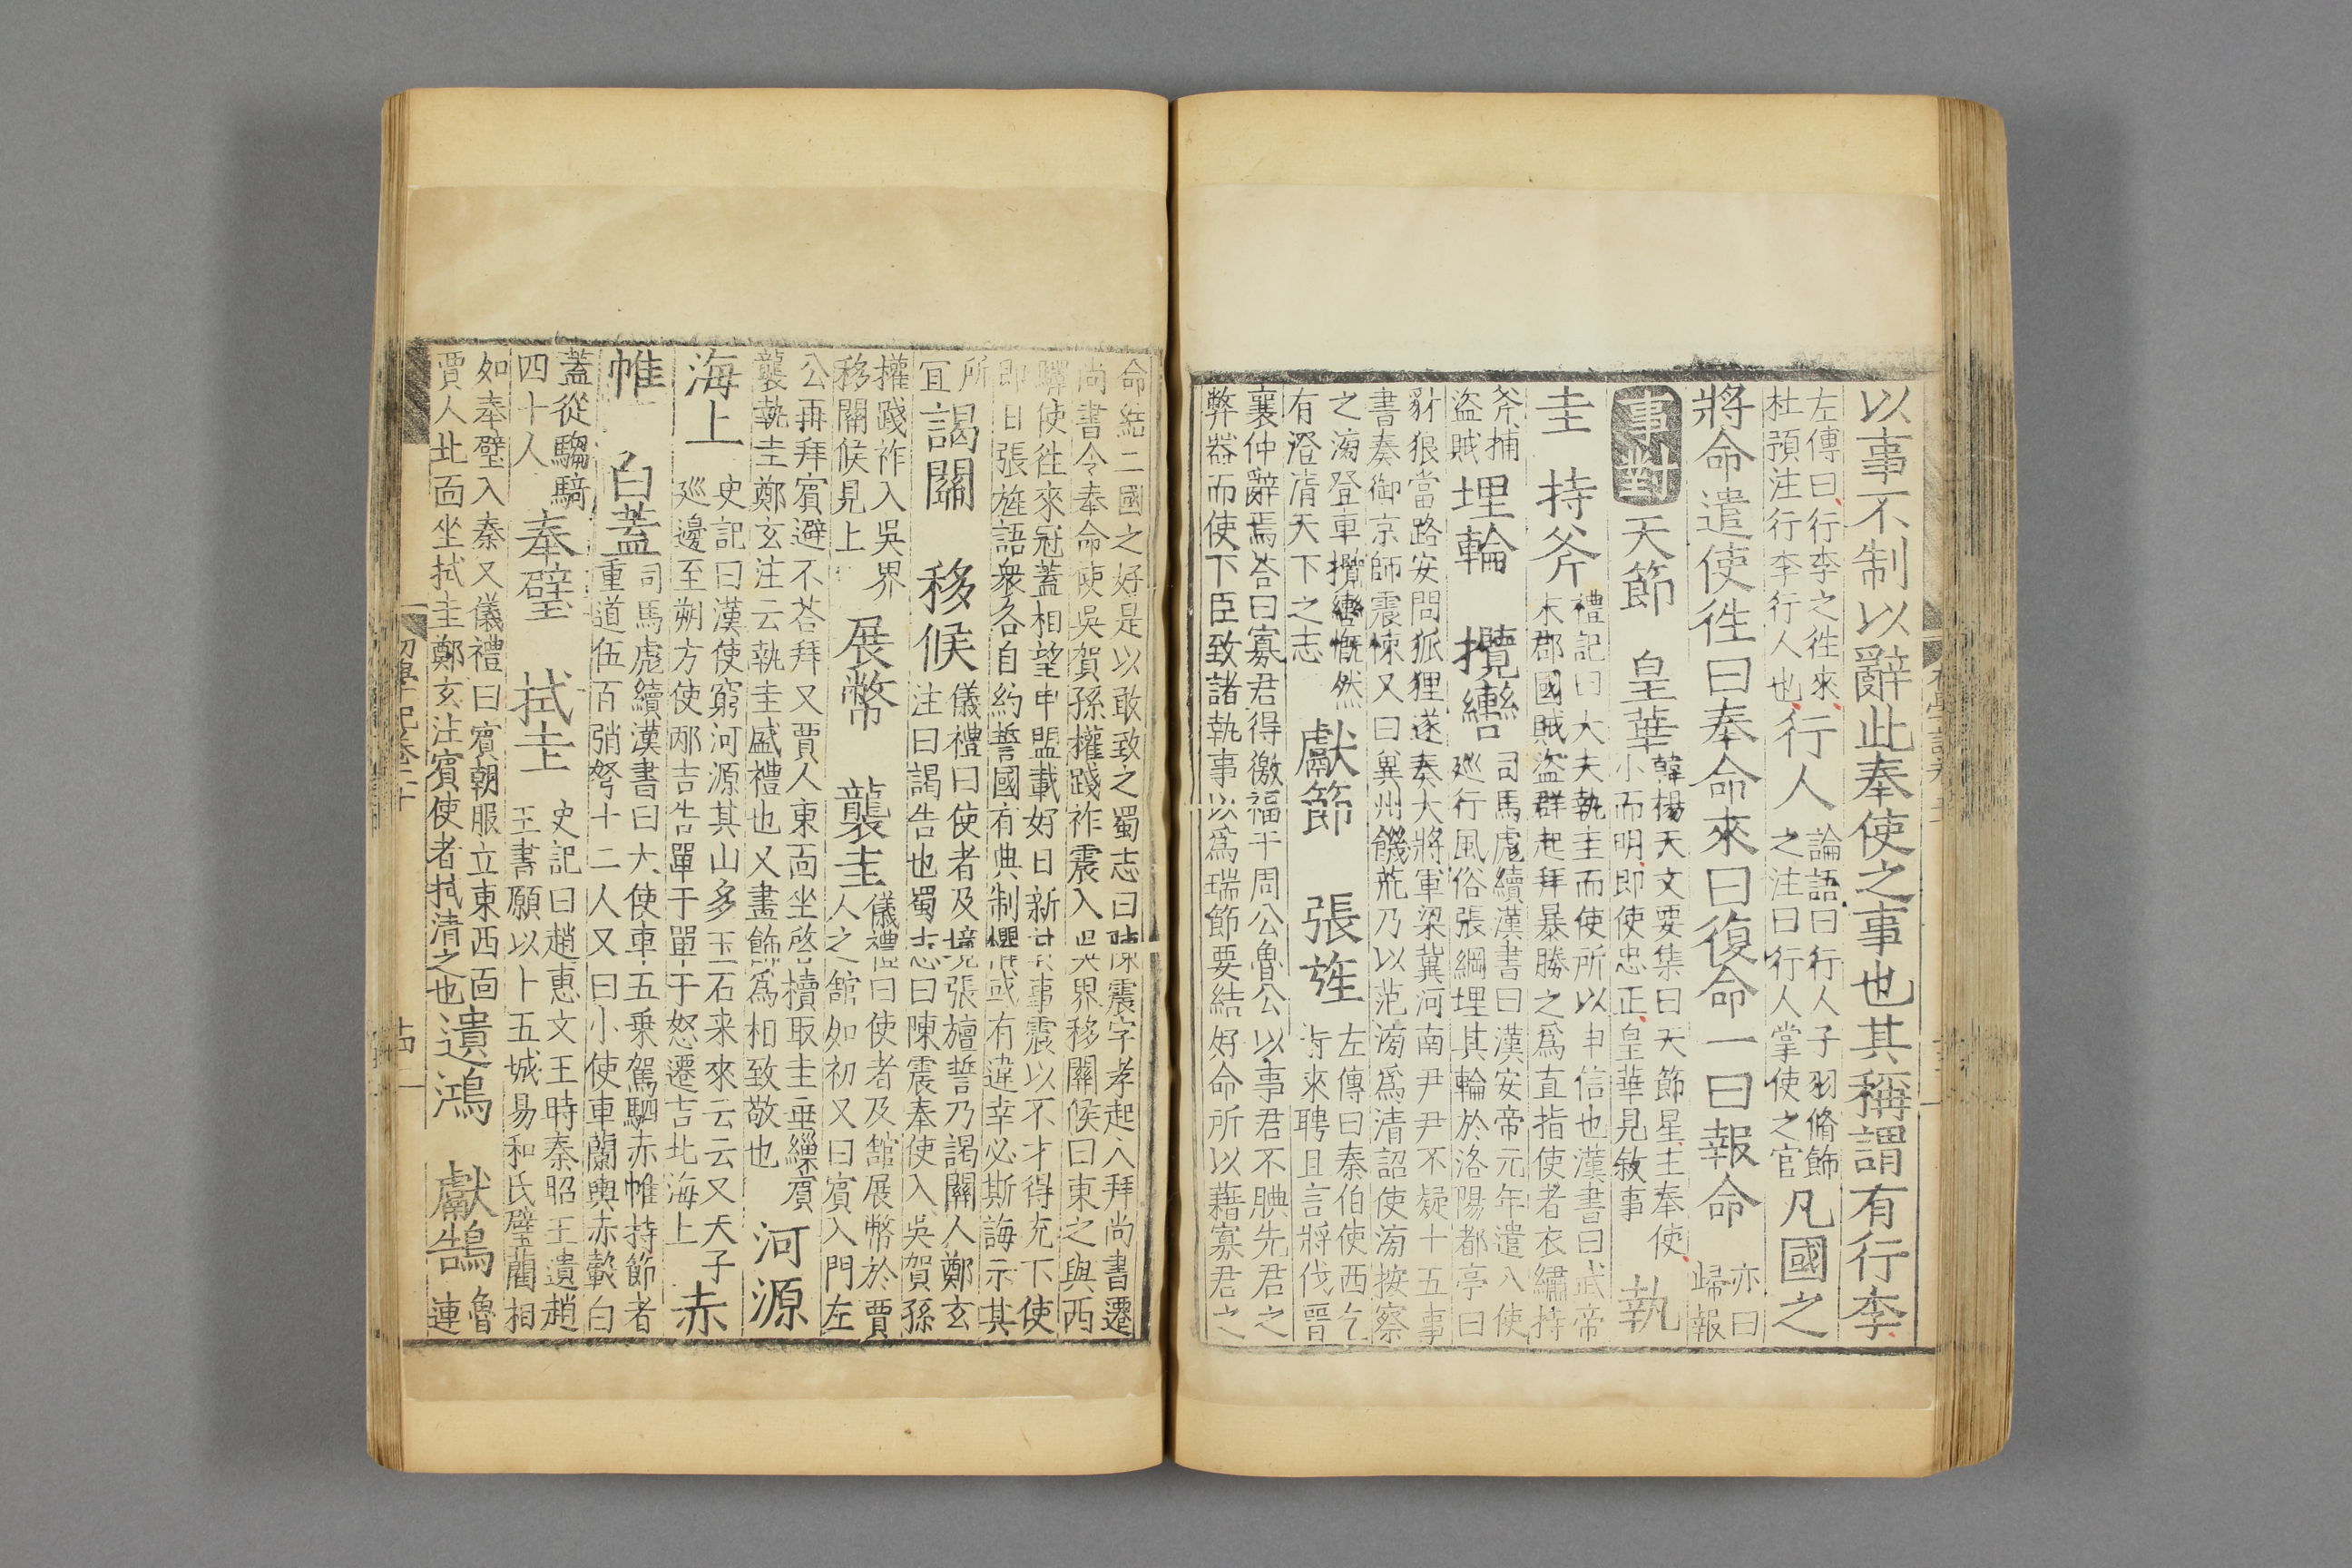 以事不制以辭此奉使之事也其稱謂有行李
左傳曰行李之徃來
杜預注行李行人也
行人
論語曰行人子羽脩飾
之注曰行人掌使之官
凡國之
將命遣使徃曰奉命來曰復命一曰報命
亦曰
歸報
事對
天節
皇華
韓楊天文要集曰天節星主奉使
小而明即使忠正皇華見敘事
執
圭
持斧
禮記曰大夫執圭而使所以申信也漢書曰武帝
末郡國賊盜群起拜暴勝之爲直指使者衣繡持
斧捕
盜賊
埋輪
攬轡
司馬彪續漢書曰漢安帝元年遣八使
廵行風俗張綱埋其輪於洛陽都亭曰
豺狼當路安問狐狸遂奏大將軍梁冀河南尹尹不疑十五事
書奏御京師震悚又曰兾州饑荒乃以范滂爲清詔使滂按察
之滂登車攬轡慨然
有澄清天下之志
獻節
張旌
左傳曰秦伯使西乞
來聘且言將伐晉
襄仲辭焉荅曰寡君得徼福于周公魯公以事君不腆先君之
弊器而使下臣致諸執事以爲瑞節要結好命所以藉寡君之
命結二國之好是以敢致之蜀志曰陳震字孝起入拜尚書遷
尚書令奉命使吳賀孫權踐祚震入吳界移關候曰東之與西
驛使徃來冠蓋相望申盟載好日新其事震以不才得充下使
即日張旌語衆各自約誓國有典制懼或有違幸必斯誨示其
所
冝
謁關
移候
儀禮曰使者及境張旜誓乃謁關人鄭玄
注曰謁告也蜀志曰陳震奉使入吳賀孫
權踐祚入吳界
移關候見上
展幣
襲圭
儀禮曰使者及舘展幣於賈
人之舘如初又曰賓入門左
公再拜賓避不荅拜又賈人東面坐啓櫝取圭垂繅賔
襲執圭鄭玄注云執圭盛禮也又畫飾爲相致敬也
河源
海上
史記曰漢使窮河源其山多玉石来來云云又天子
廵邊至朔方使郍吉告單于單于怒遷吉北海上
赤
帷
白蓋
司馬彪續漢書曰大使車五乗駕駟赤帷持節者
重道伍百弰弩十二人又曰小使車蘭輿赤轂白
蓋從騶騎
四十人
奉璧
拭圭
史記曰趙惠文王時秦昭王遺趙
王書願以十五城易和氏璧藺相
如奉璧入秦又儀禮曰賔朝服立東西面
賈人北面坐拭圭鄭玄注賔使者拭清之也
遺鴻
獻鵠
魯
連
初學記卷二十